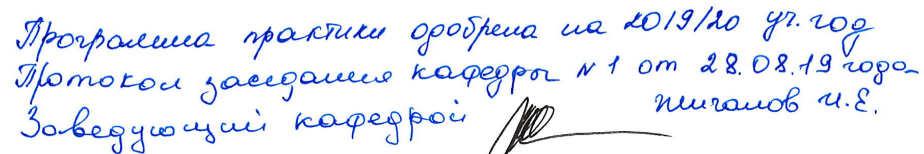 Программа практики одобрена на 2019/20 уч. год
Протокол заседания кафедры №1 от 28.08.19 года
Заведующий кафедрой Жиганов И.Е.